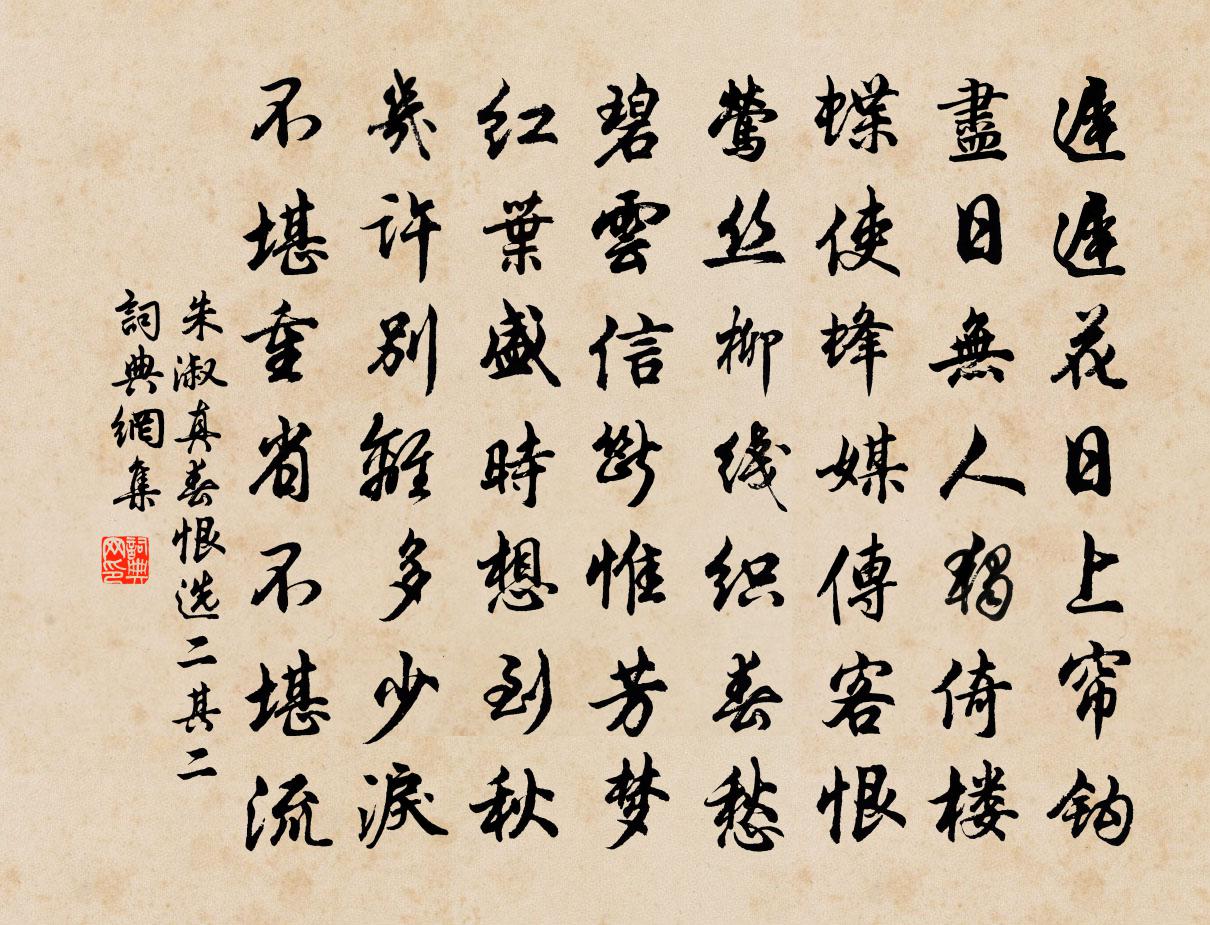 遲遲花日上帘鈎
盡日無人獨倚楼
蝶使蜂媒傳客恨
鶯丝柳线织春愁
碧雲信斷惟芳梦
红葉盛時想到秋
幾許別離多少淚
不堪重省不堪流
朱淑真春恨选二其二
詞典網集
詞典网印